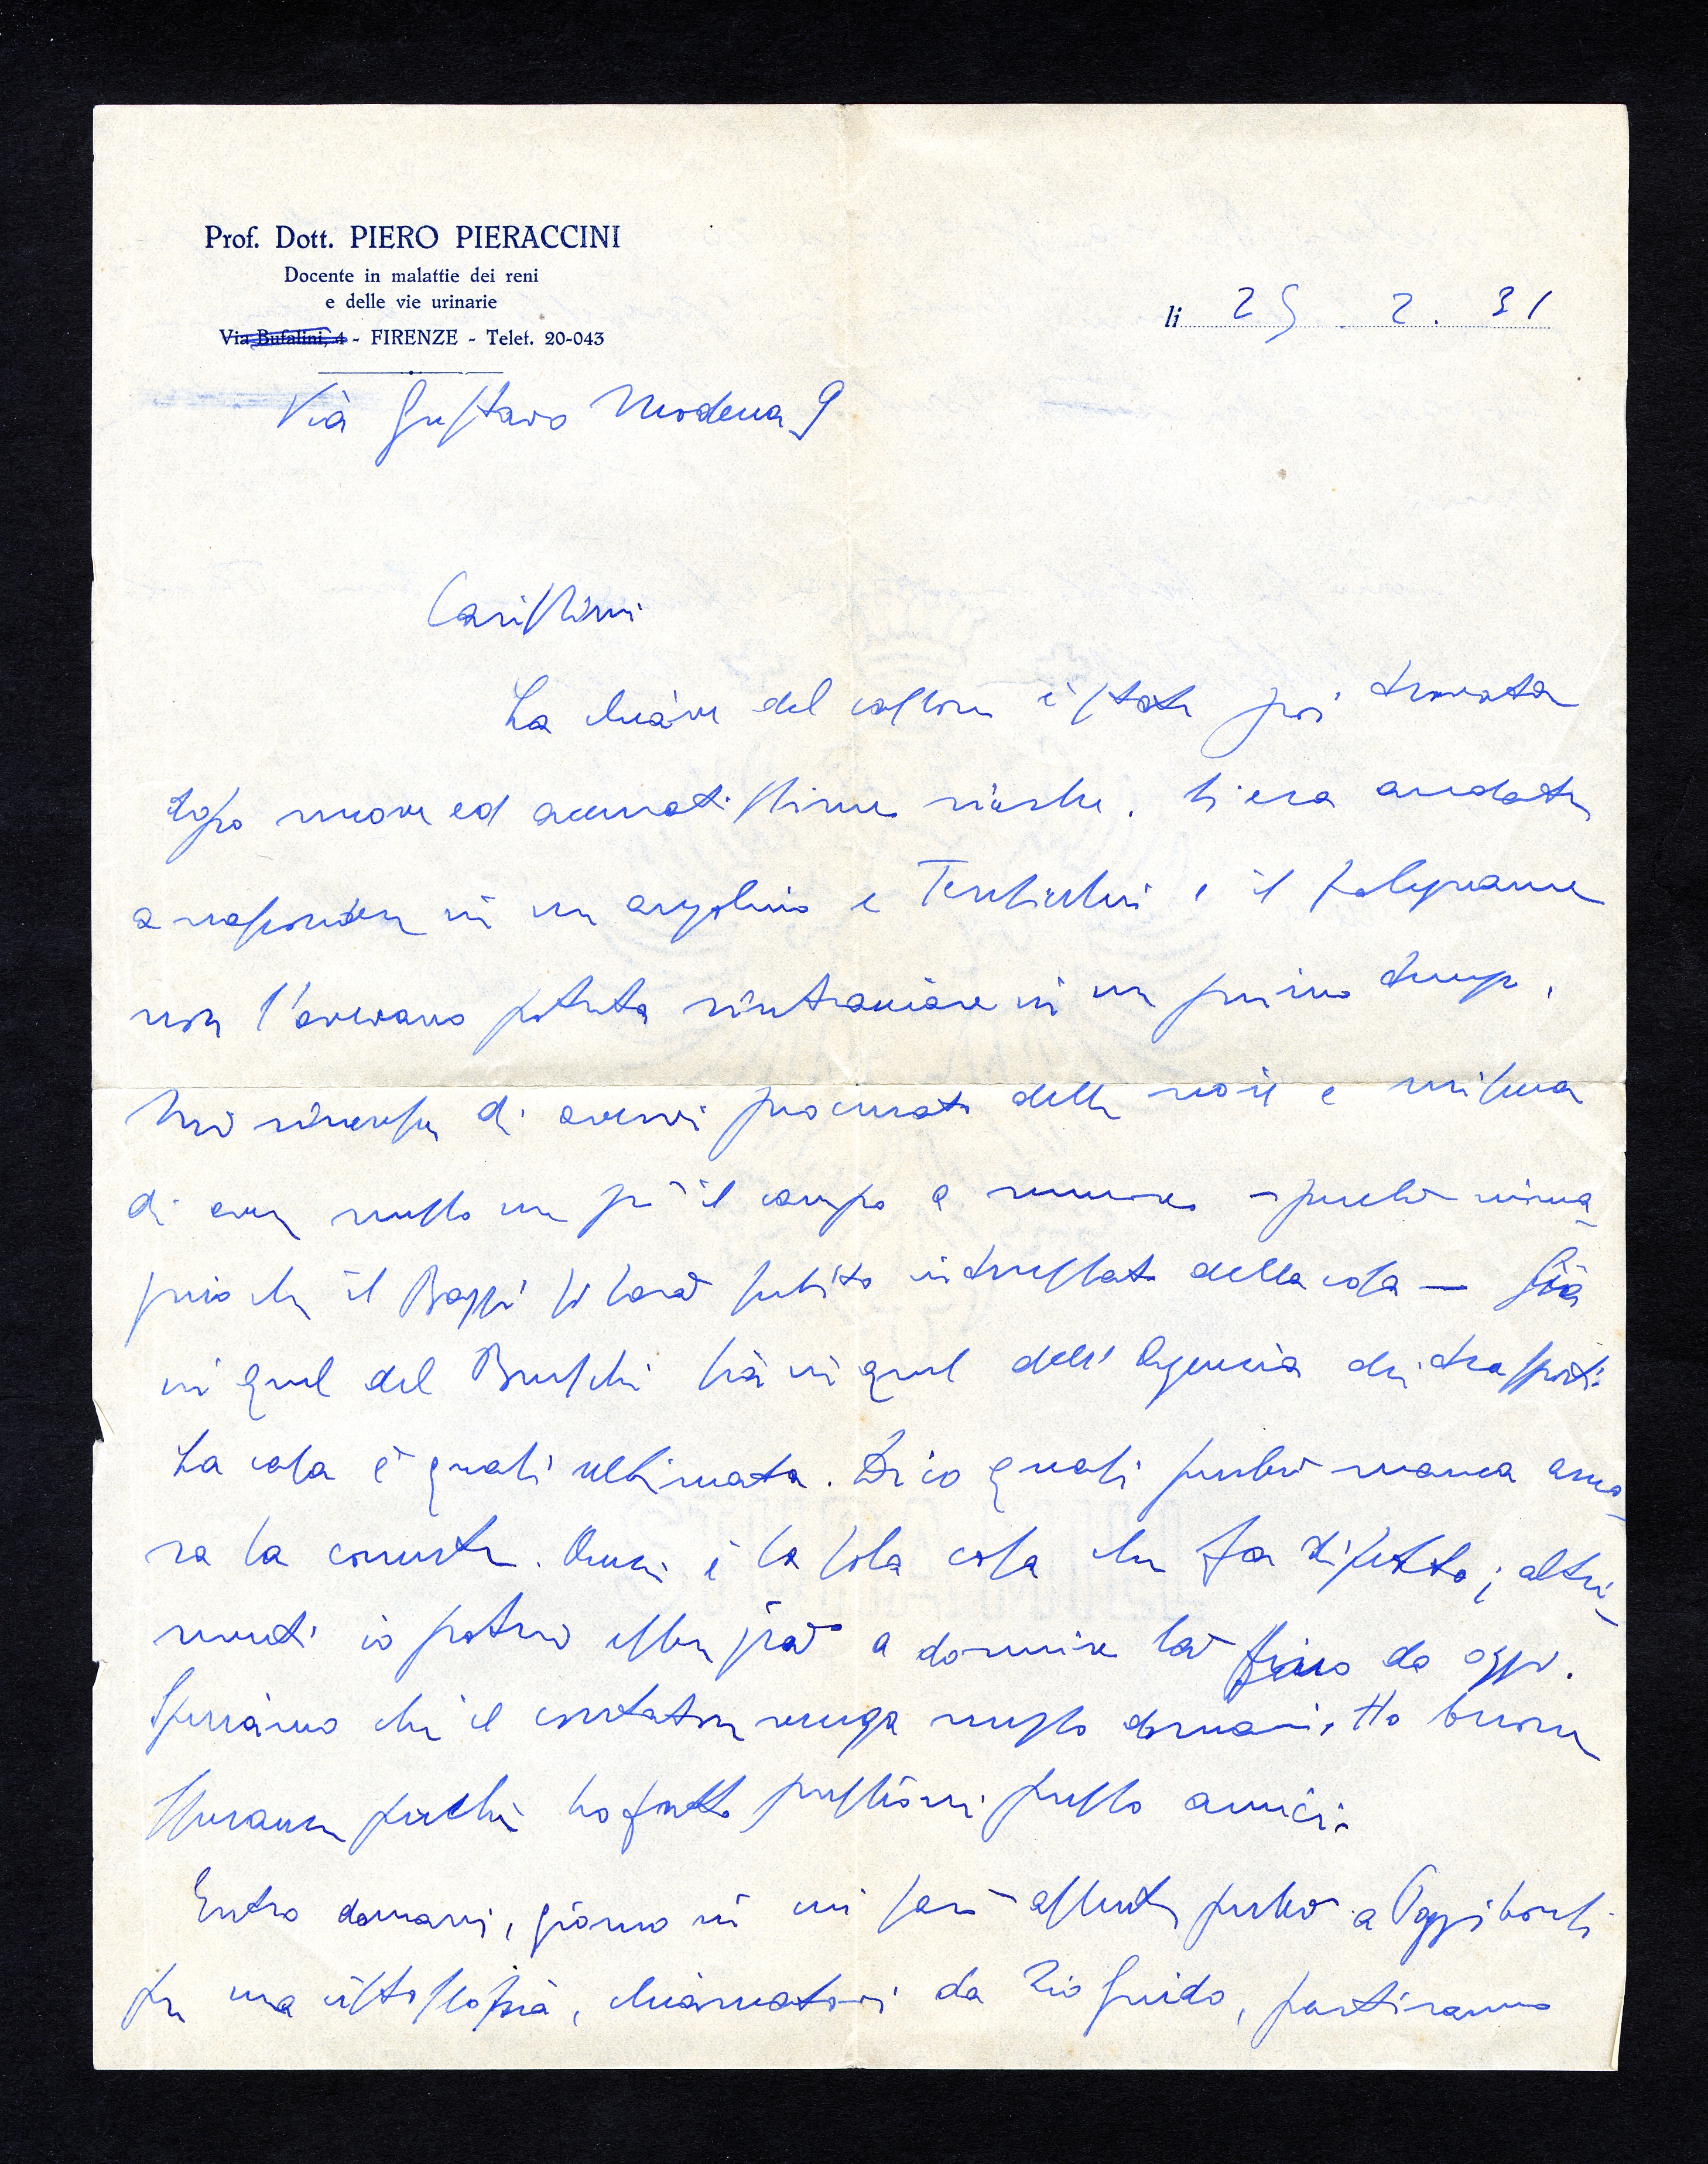 Prof. Dott. PIERO PIERACCINI
Docente in malattie dei reni
e delle vie urinarie
Via Bufalini, 4 - FIRENZE - Telef. 20-043
li 25. 2. 31
Via Gustavo Modena 9
Carissimi
La chiave del cassone è stata poi trovata
dopo nuove ed accuratissime ricerche. Si era andata
a nascondere in un angolino e Tersicchi e il falegname
non l'avevano potuta rintracciare in un primo tempo.
Mi rincresce di avervi procurato delle noie e
di aver messo un po' il campo a rumore - perché imma-
gino che il Bassi si sarà subito interessato della cosa - Sia
in quel del Bruschi sia in quel dell'Agenzia dei trasporti.
La casa è quasi ultimata. Dico quasi perché manca anco-
ra la corrente. Ormai è la sola cosa che fa difetto; altri-
menti io potrei esser già a dormire là fino da oggi.
Speriamo che il contatore venga messo domani. Ho buone
speranze perché ho fatto pressioni presso amici.
Entro domani, giorno in cui sarò assente perché a Poggibonsi
per una cistoscopia, chiamatovi da Zio Guido, partiranno